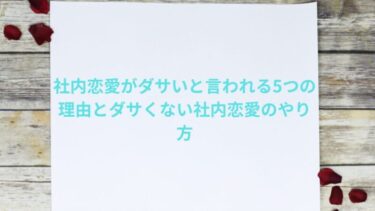 社内恋愛がダサいと言われる5つの
理由とダサくない社内恋愛のやり
方